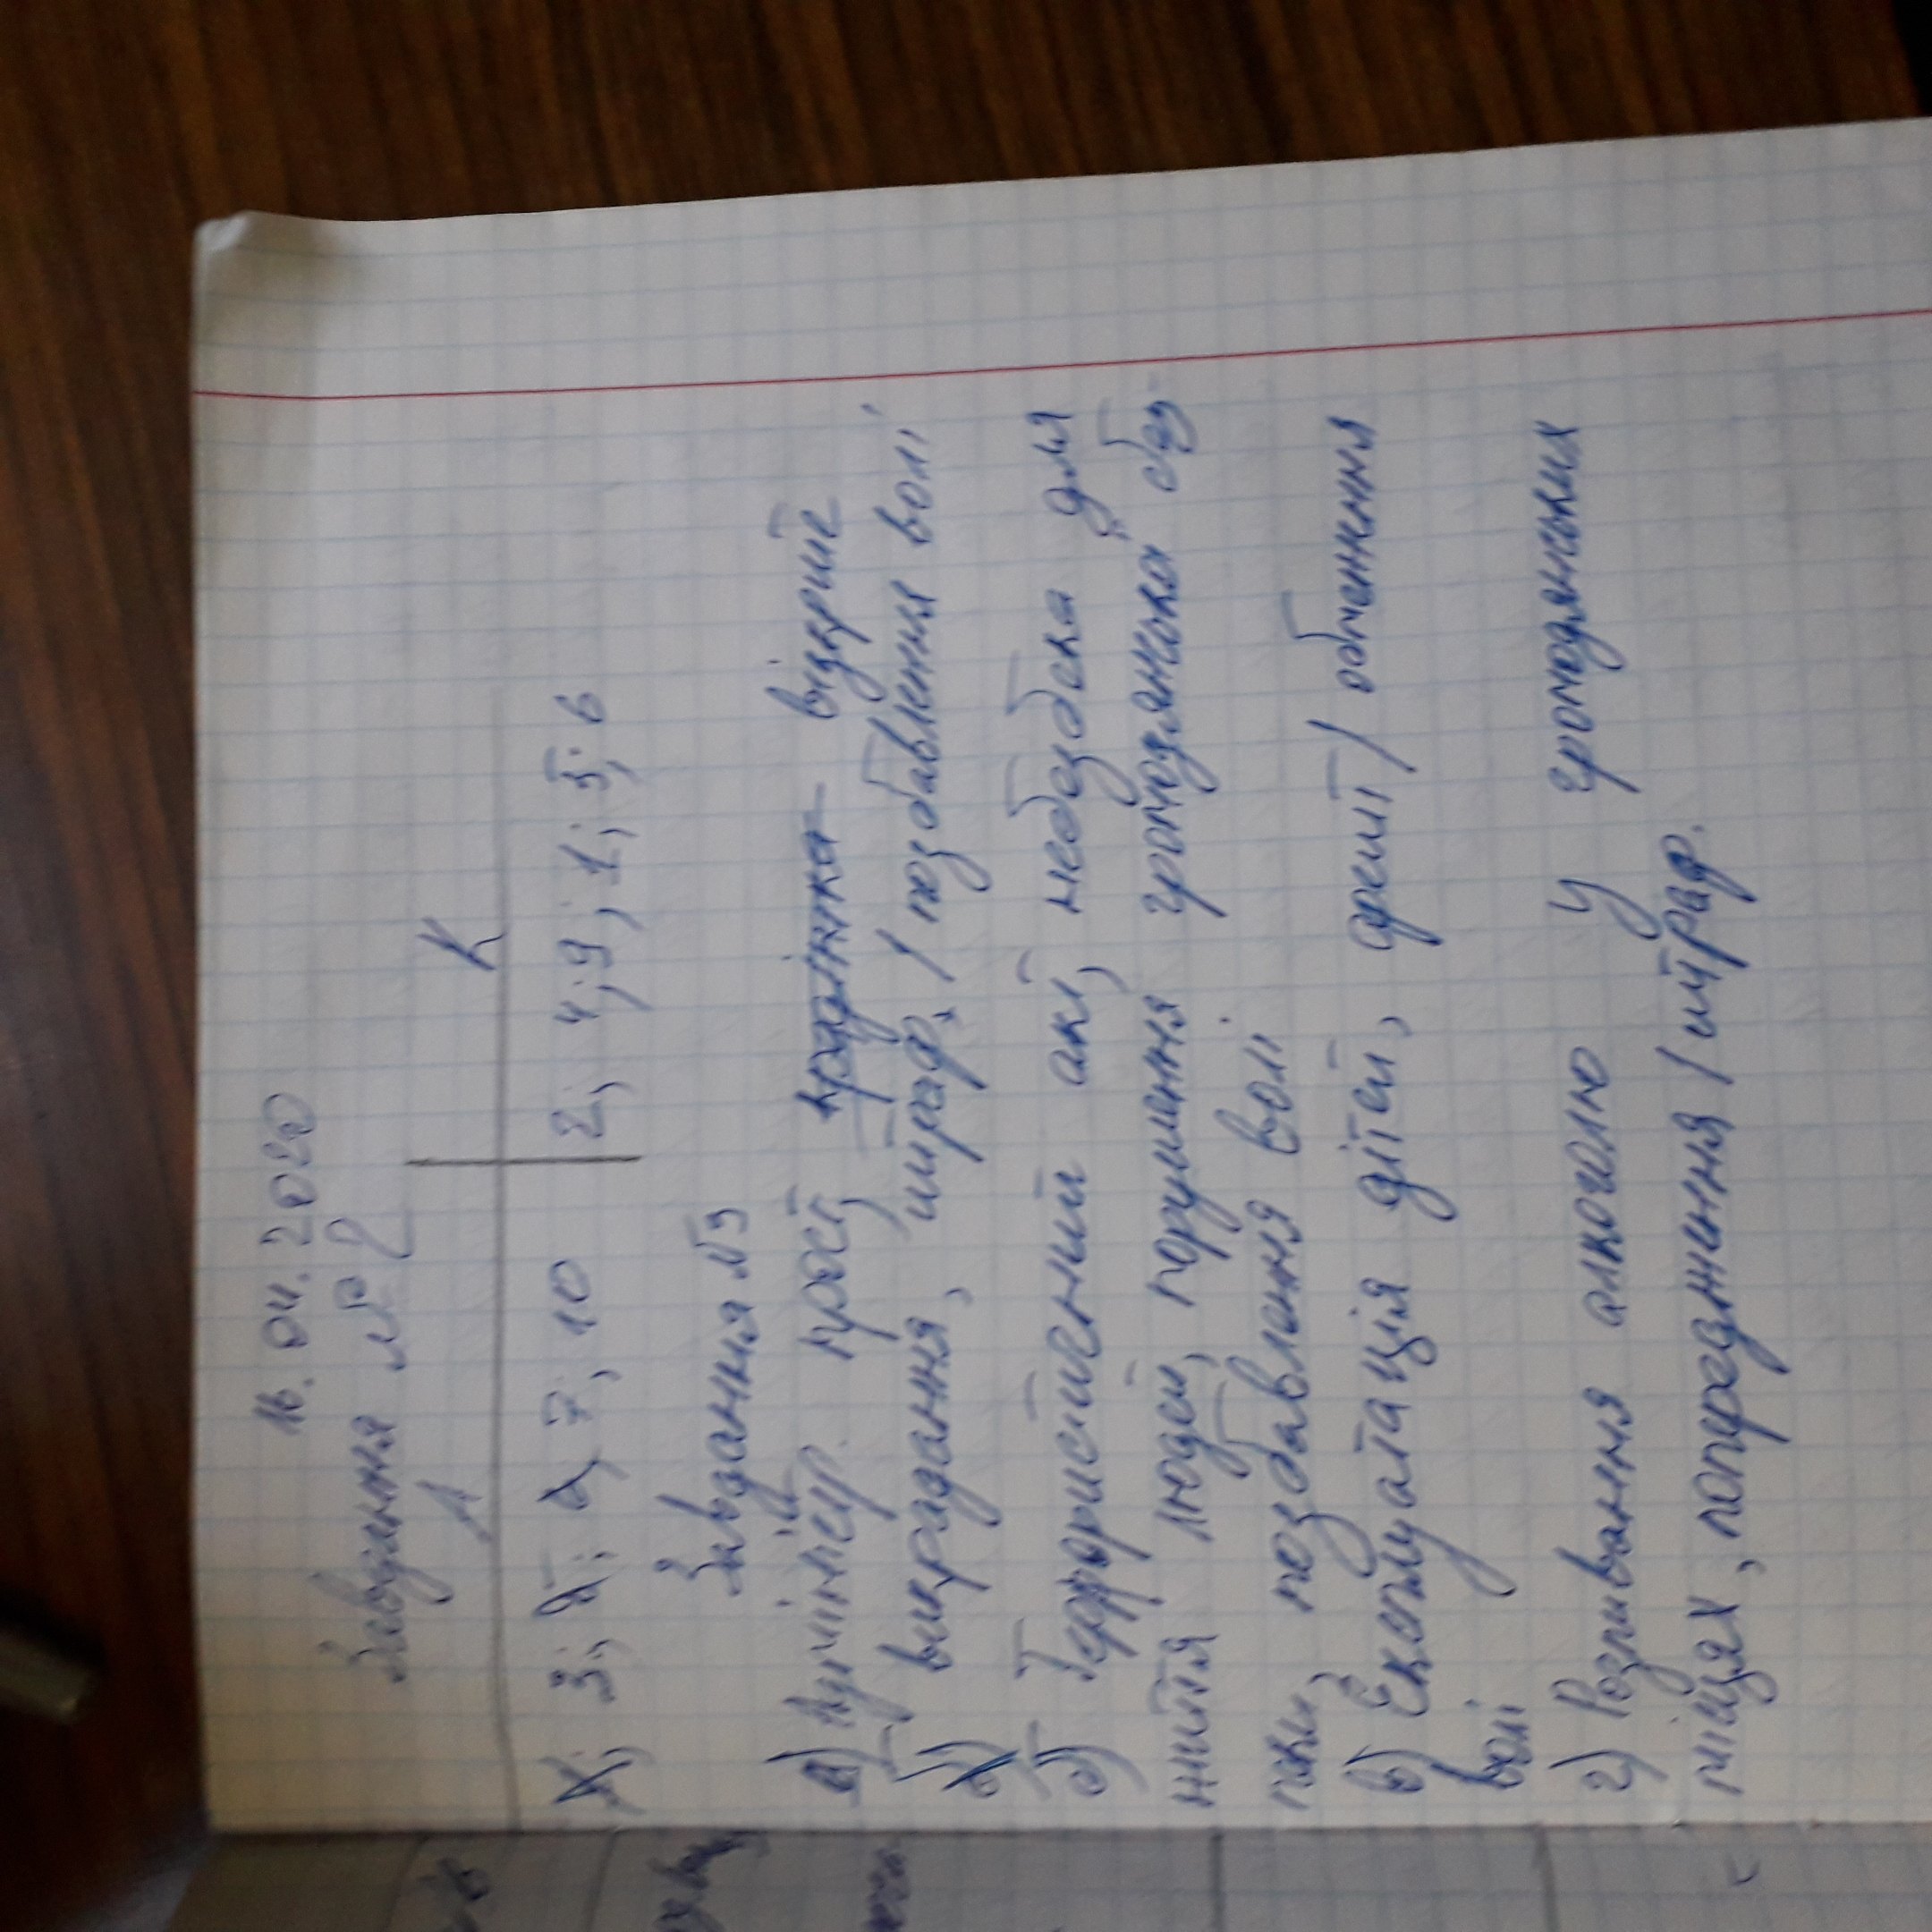 16.04.2020
Завдання №2
А К
3; 7; 10 2; 4; 9; 1; 5; 6
Завдання №3
а) Адміністр. прост, крадіжка відкрите
викрадання, штраф / позбавлення волі
б) Терористичний акт, небезбека для
життя людей, порушення громодянської без-
пеки, позбавлення волі.
в) Експлуатація дітей, арешт / обмеження
волі
г) Розпивання алкоголю у громодянських
місцях, попередження / штраф.